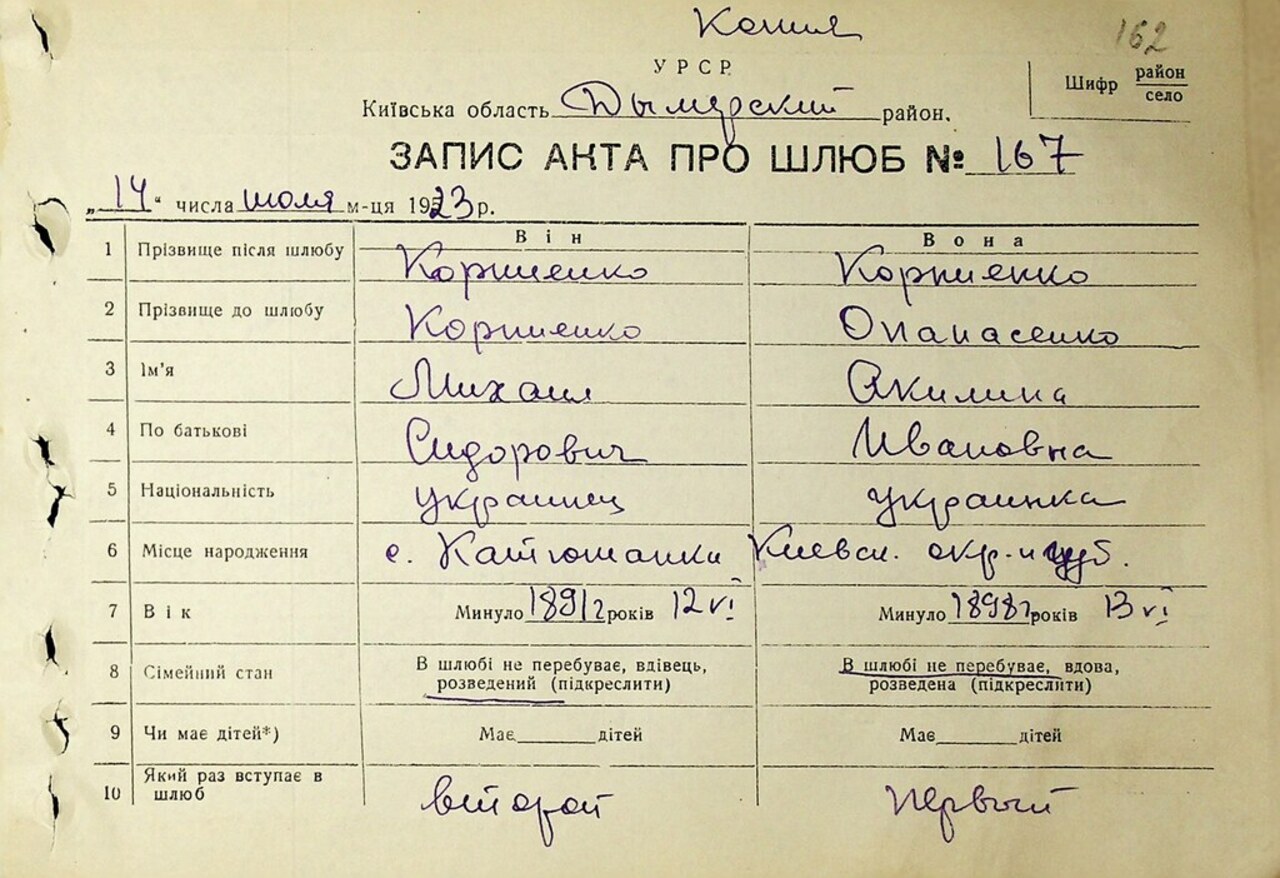 Копия
162
УРСР
Шифр район
село
Київська область Дымерский район.
ЗАПИС АКТА ПРО ШЛЮБ № 167
„14“ числа июля м-ця 1923 р.
Він Вона
1 Прізвище після шлюбу Корниенко Корниенко
2 Прізвище до шлюбу Корниенко Опанасенко
3 Ім'я Михаил Акилина
4 По батькові Сидорович Ивановна
5 Національність украинец украинка
6 Місце народження с. Катюшанки Киевск. окр. и губ.
7 Вік Минуло 1891 г років 12 VI Минуло 1898 г років 13 VI
8 Сімейний стан В шлюбі не перебуває, вдівець, В шлюбі не перебуває, вдова,
розведений (підкреслити) розведена (підкреслити)
9 Чи має дітей*) Має дітей Має дітей
10 Який раз вступає в
шлюб второй первый